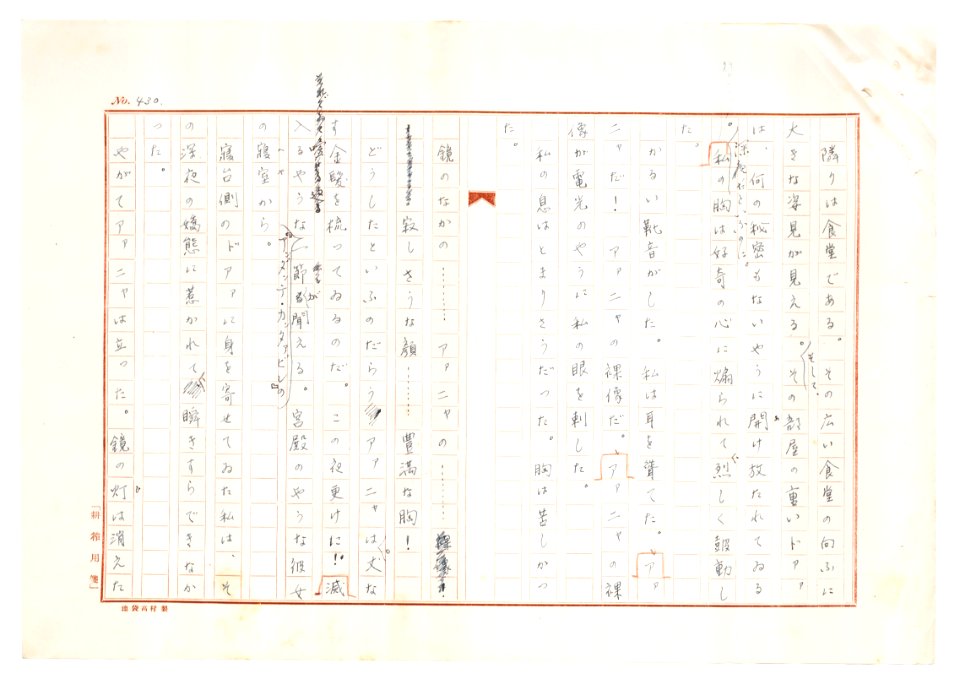 No. 430
隣りは食堂である。その広い食堂の向ふに
大きな姿見が見える。そして、その部屋の重いドアァ
は、何の秘密もないやうに開け放たれてゐる
。私の胸は好奇の心に煽られて烈しく鼓動し
た。
かるい靴音がした。私は耳を聳てた。アァ
ニャだ! アァニャの裸像だ。アァニャの裸
像が電光のやうに私の眼を刺した。
私の息はとまりさうだった。胸は苦しかつ
た。
鏡のなかの………… アァニャの …………
寂しさうな顔 ………… 豊満な胸!
どうしたといふのだらう アァニャは丈な
す金髪を梳ってゐるのだ。この夜更けに! 滅
入るやうな一節が聞える。宮殿のやうな彼女
アンダンテ・カンタァビレの
の寝室から。
寝台側のドアァに身を寄せてゐた私は、そ
の深夜の嬌態に惹かれて瞬きすらできなか
った。
やがてアァニャは立った。鏡の灯は消えた
[耕稼用箋]
池袋高村製